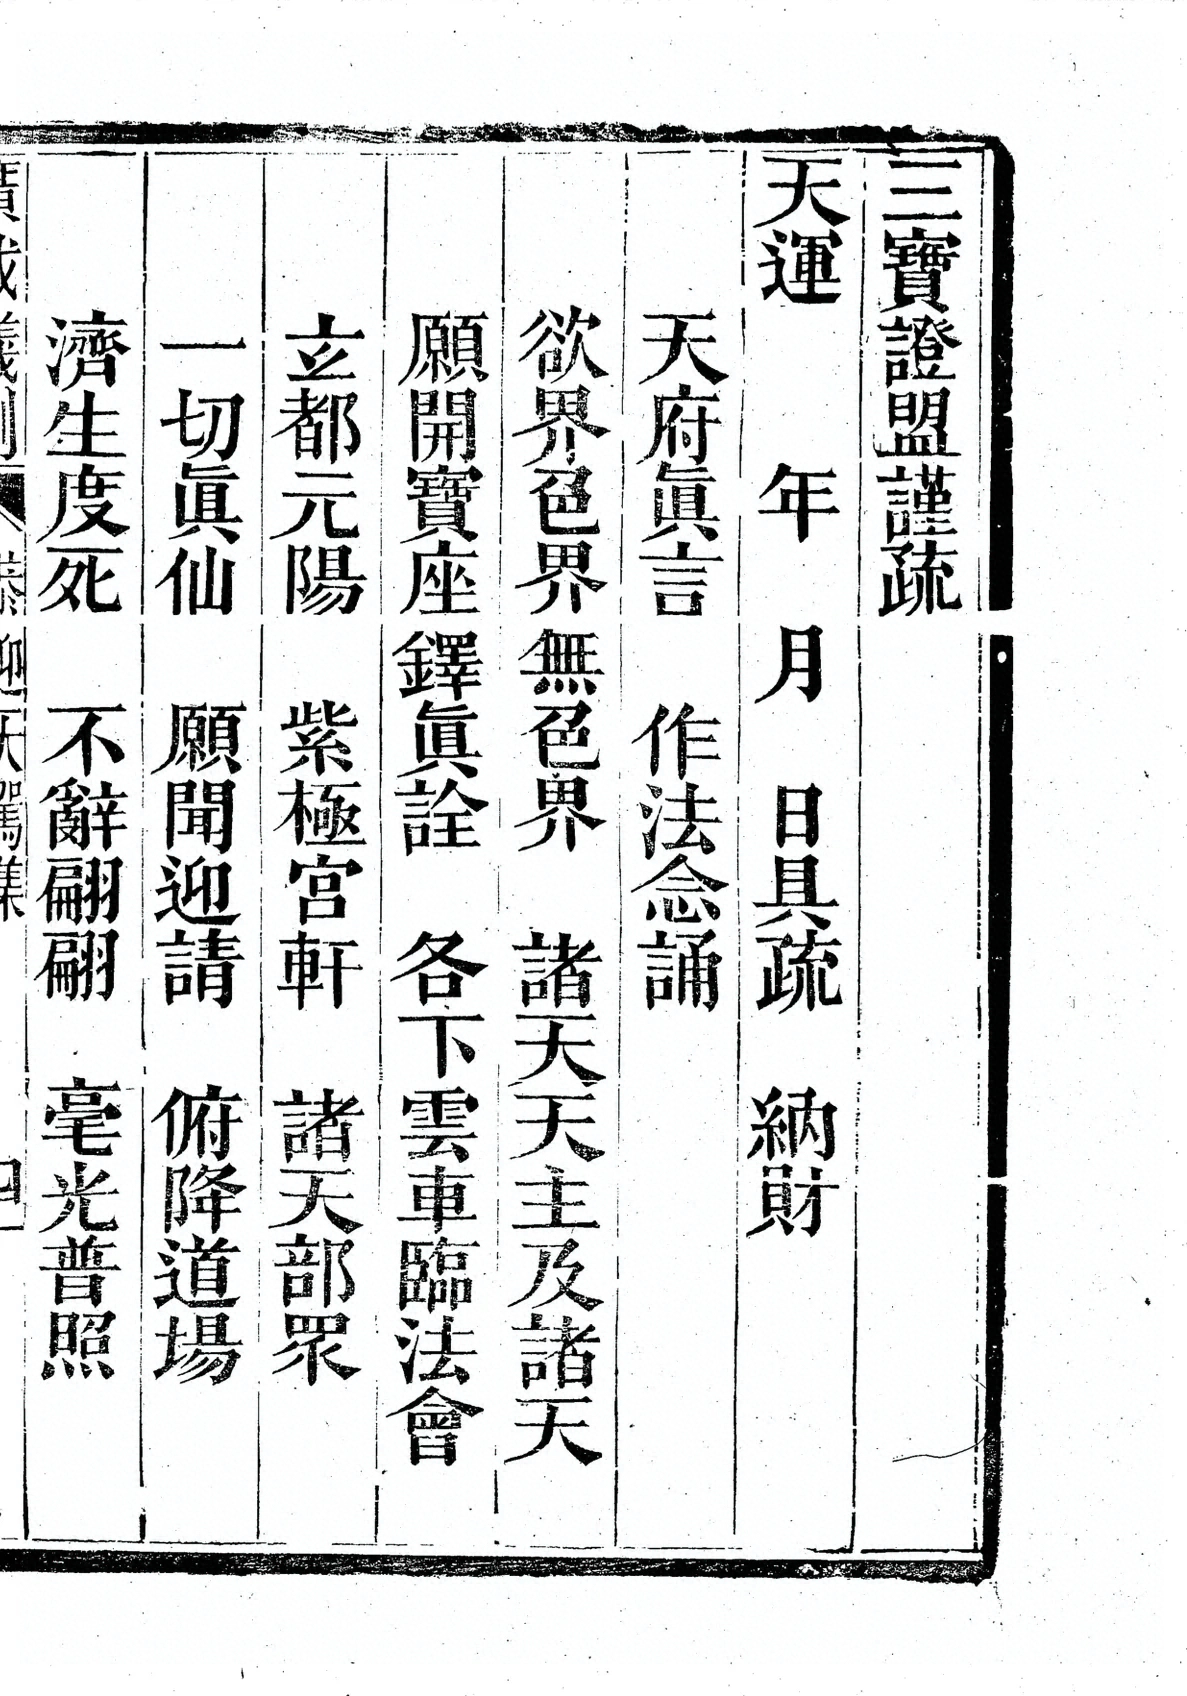 三寶證盟謹疏
天運　年　月　日具疏　納財
天府眞言　作法念誦
欲界色界無色界　諸天天主及諸天
願開寶座鐸眞詮　各下雲車臨法會
玄都元陽　紫極宮軒　諸天部眾
一切眞仙　願聞迎請　俯降道場
濟生度死　不辭翩翩　毫光普照
廣成儀制　恭迎天駕集　四